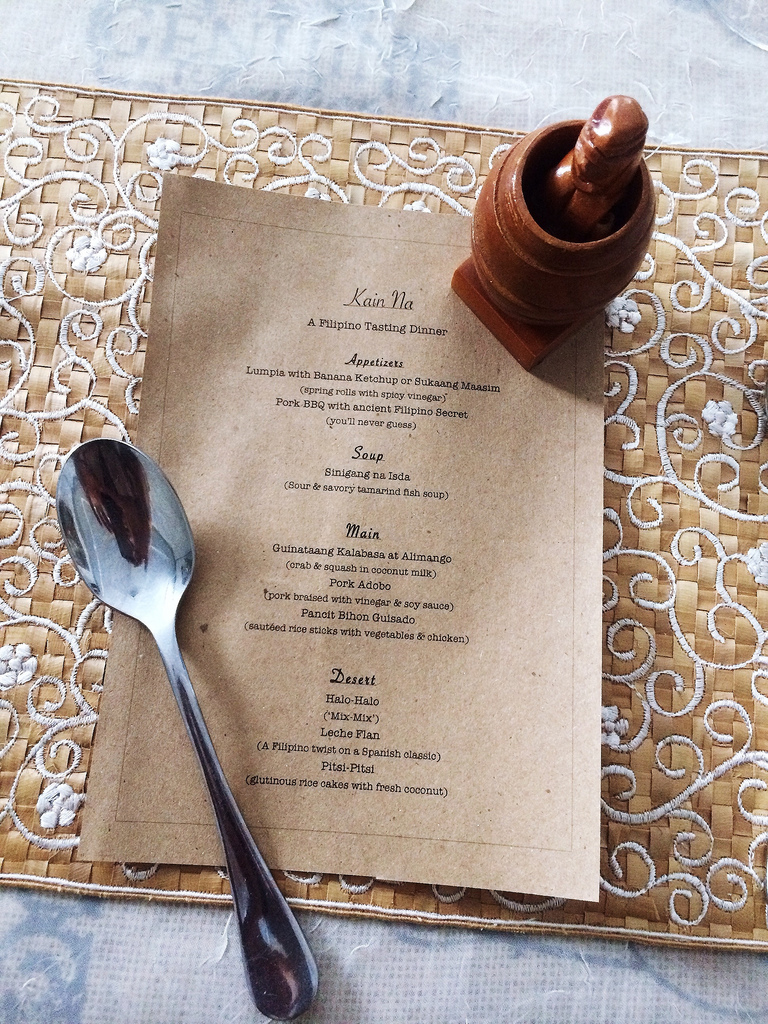 Kain Na
A Filipino Tasting Dinner
Appetizers
Lumpia with Banana Ketchup or Sukaang Maasim
(spring rolls with spicy vinegar)
Pork BBQ with ancient Filipino Secret
(you'll never guess)
Soup
Sinigang na Isda
(Sour & savory tamarind fish soup)
Main
Guinataang Kalabasa at Alimango
(crab & squash in coconut milk)
Pork Adobo
(pork braised with vinegar & soy sauce)
Pancit Bihon Guisado
(sautéed rice sticks with vegetables & chicken)
Desert
Halo-Halo
("Mix-Mix")
Leche Flan
(A Filipino twist on a Spanish classic)
Pitsi-Pitsi
(glutinous rice cakes with fresh coconut)